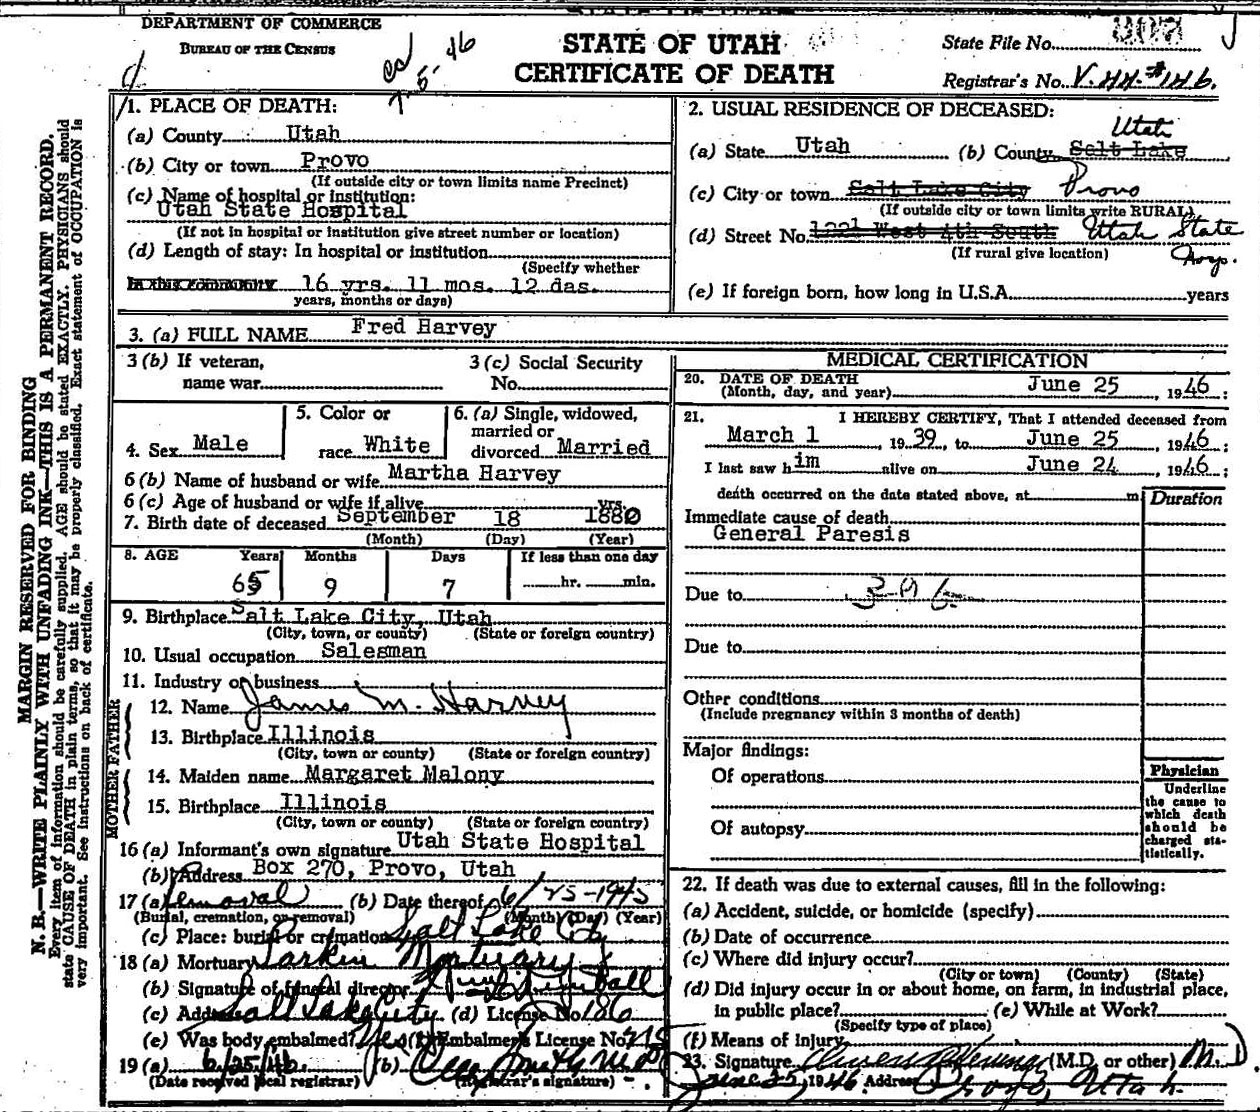 DEPARTMENT OF COMMERCE
BUREAU OF THE CENSUS
STATE OF UTAH
CERTIFICATE OF DEATH
State File No.
Registrar's No. V. 44. #146.
MARGIN RESERVED FOR BINDING
N. B.—WRITE PLAINLY WITH UNFADING INK—THIS IS A PERMANENT RECORD.
Every item of information should be carefully supplied. AGE should be stated EXACTLY. PHYSICIANS should
state CAUSE OF DEATH in plain terms, so that it may be properly classified. Exact statement of OCCUPATION is
very important. See instructions on back of certificate.
1. PLACE OF DEATH:
(a) County Utah
(b) City or town Provo
(If outside city or town limits name Precinct)
(c) Name of hospital or institution:
Utah State Hospital
(If not in hospital or institution give street number or location)
(d) Length of stay: In hospital or institution
(Specify whether
In this community 16 yrs. 11 mos. 12 das.
years, months or days)
2. USUAL RESIDENCE OF DECEASED:
(a) State Utah (b) County Salt Lake Utah
(c) City or town Salt Lake City Provo
(If outside city or town limits write RURAL)
(d) Street No. 1221 West 4th South Utah State Hosp.
(If rural give location)
(e) If foreign born, how long in U.S.A. years
3. (a) FULL NAME Fred Harvey
3 (b) If veteran,
name war
3 (c) Social Security
No.
4. Sex Male
5. Color or
race White
6. (a) Single, widowed,
married or
divorced Married
6 (b) Name of husband or wife Martha Harvey
6 (c) Age of husband or wife if alive yrs.
7. Birth date of deceased September 18 1880
(Month) (Day) (Year)
8. AGE Years Months Days If less than one day
65 9 7 hr. min.
9. Birthplace Salt Lake City, Utah
(City, town, or county) (State or foreign country)
10. Usual occupation Salesman
11. Industry or business
FATHER
12. Name James M. Harvey
13. Birthplace Illinois
(City, town or county) (State or foreign country)
MOTHER
14. Maiden name Margaret Malony
15. Birthplace Illinois
(City, town or county) (State or foreign country)
16 (a) Informant's own signature Utah State Hospital
(b) Address Box 270, Provo, Utah
17 (a) removal (b) Date thereof 6/25-1945
(Burial, cremation, or removal) (Month) (Day) (Year)
(c) Place: burial or cremation Salt Lake City
18 (a) Mortuary Larkin Mortuary
(b) Signature of funeral director
(c) Address Salt Lake City (d) License No. 186
(e) Was body embalmed? Yes (f) Embalmer's License No. 215
19 (a) 6/25/46. (b)
(Date received local registrar) (Registrar's signature)
MEDICAL CERTIFICATION
20. DATE OF DEATH
(Month, day, and year) June 25, 1946
21. I HEREBY CERTIFY, That I attended deceased from
March 1 1939, to June 25, 1946;
I last saw him alive on June 24, 1946;
death occurred on the date stated above, at m
Duration
Immediate cause of death
General Paresis
Due to
Due to
Other conditions
(Include pregnancy within 3 months of death)
Major findings:
Of operations
Of autopsy
Physician
Underline
the cause to
which death
should be
charged sta-
tistically.
22. If death was due to external causes, fill in the following:
(a) Accident, suicide, or homicide (specify)
(b) Date of occurrence
(c) Where did injury occur?
(City or town) (County) (State)
(d) Did injury occur in or about home, on farm, in industrial place,
in public place? (e) While at Work?
(Specify type of place)
(f) Means of injury
23. Signature (M.D. or other) M.D.
June 25, 1946. Address Provo, Utah.